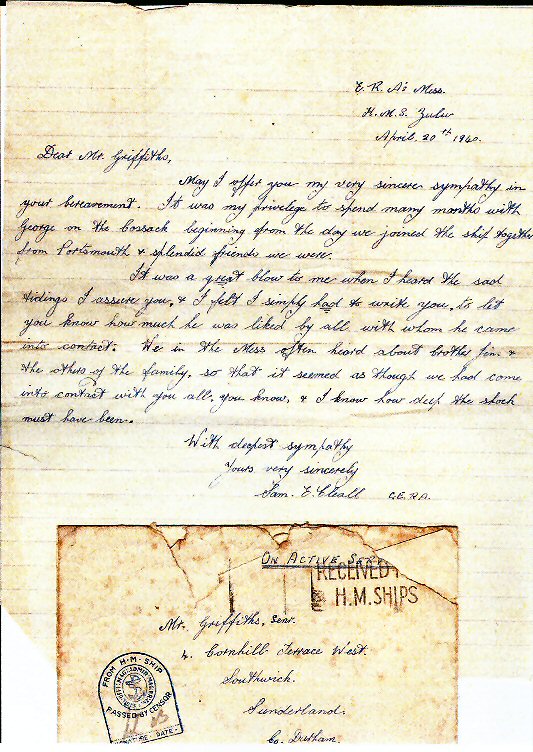 E. R. A's Mess.
H.M.S. Zulu
April. 20th 1940.
Dear Mr. Griffiths,
May I offer you my very sincere sympathy in
your bereavement. It was my privilege to spend many months with
George on the Cossack beginning from the day we joined the ship together
from Portsmouth & splendid friends we were.
It was a great blow to me when I heard the sad
tidings I assure you, & I felt I simply had to write you, to let
you know how much he was liked by all with whom he came
into contact. We in the Mess often heard about brother Jim &
the others of the family, so that it seemed as though we had come
into contact with you all, you know, & I know how deep the shock
must have been.
With deepest sympathy
Yours very sincerely
Sam. E. Cleall C.E.R.A.
ON ACTIVE SER
RECEIVED
H.M. SHIPS
Mr. Griffiths, Senr.
4. Cornhill Terrace West.
Southwick.
Sunderland.
Co. Durham.
FROM H·M·SHIP
PASSED BY CENSOR
SIGNATURE DATE